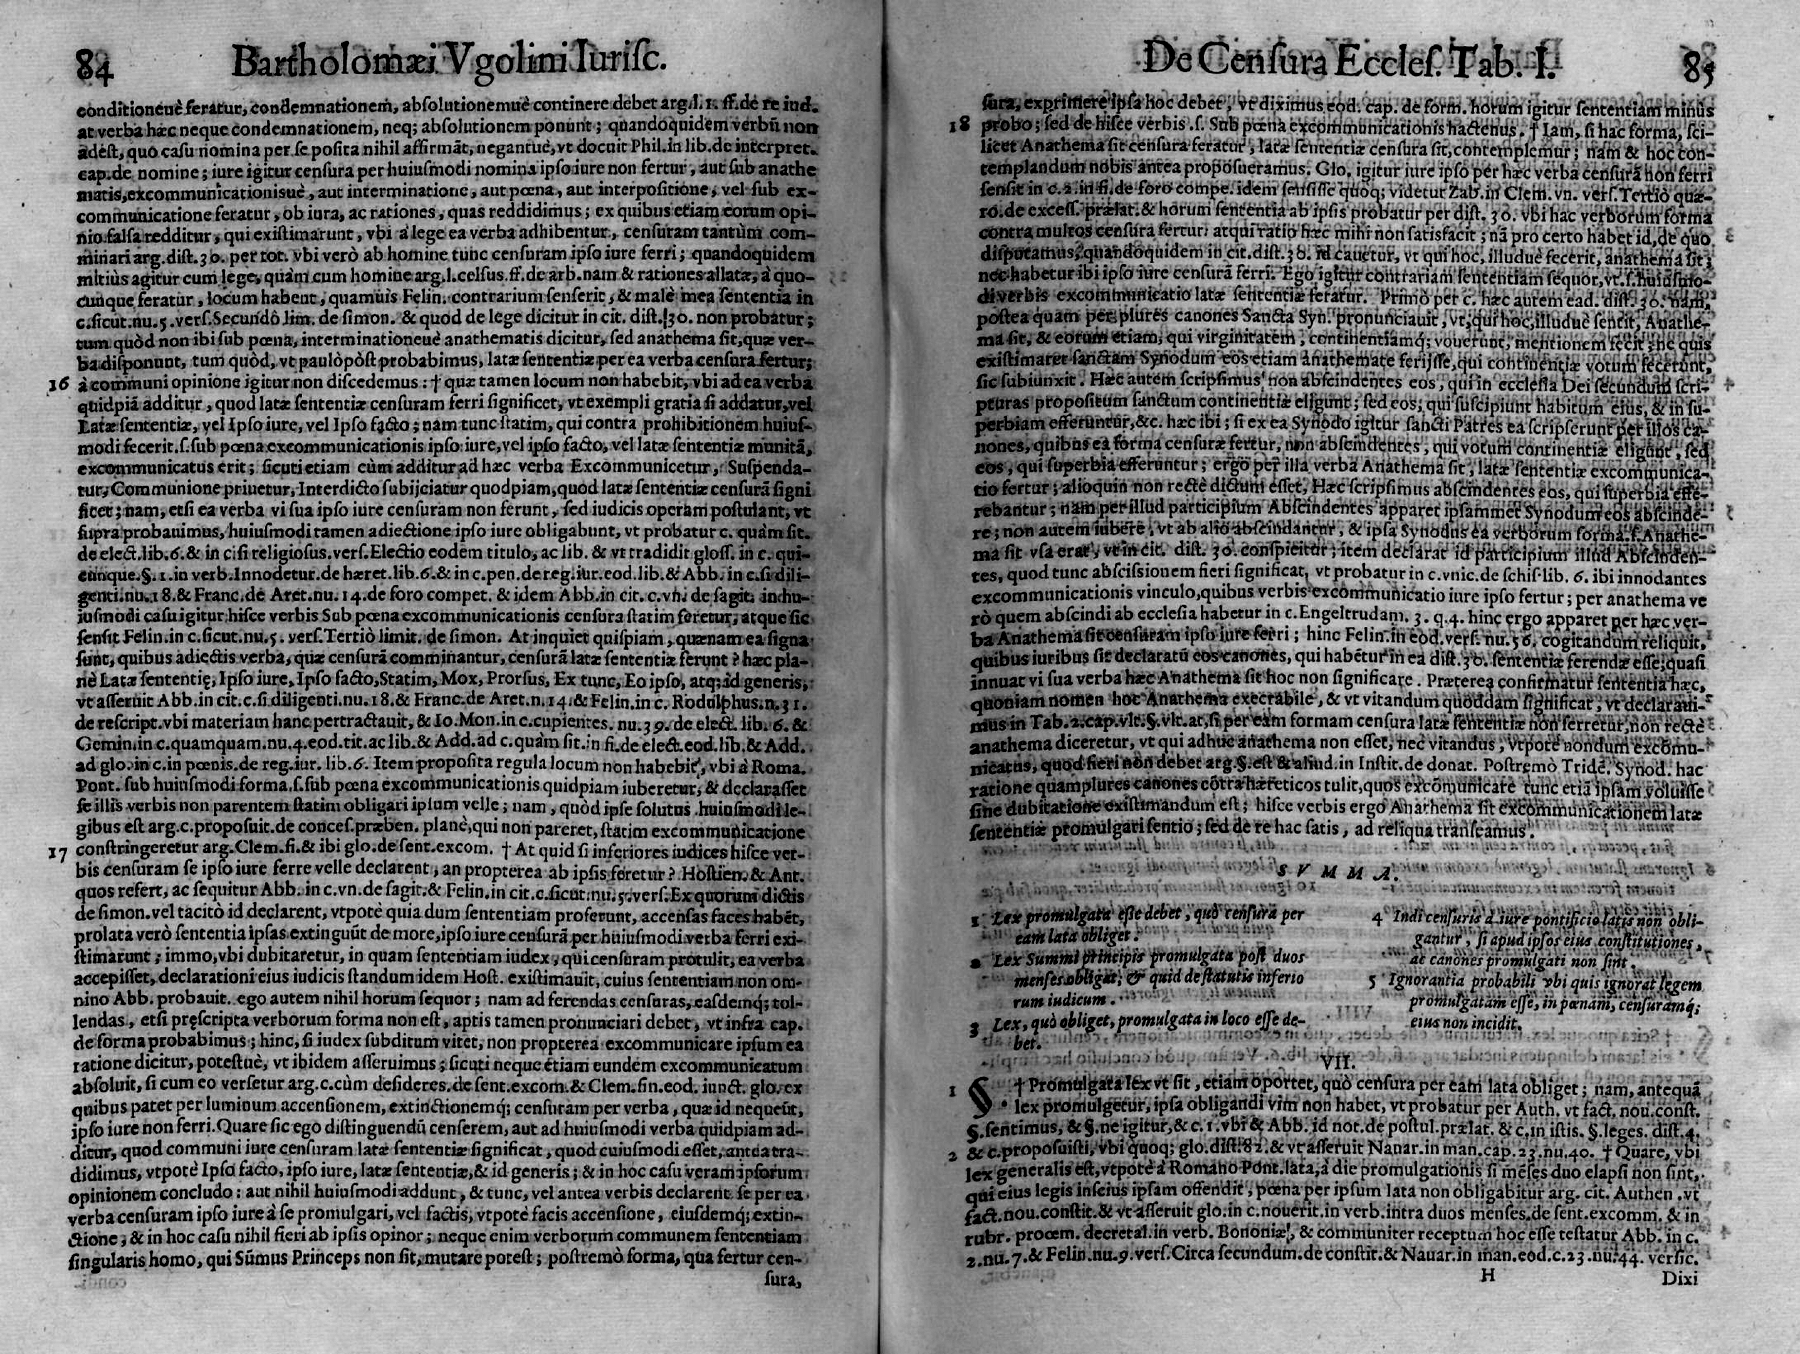 84 Bartholomæi Vgolini Iurisc.
conditioneuè feratur, condemnationem, absolutionemuè continere debet arg. l. 1. ff. de re iud.
at verba hæc neque condemnationem, neq; absolutionem ponunt; quandoquidem verbũ non
adest, quo casu nomina per se posita nihil affirmãt, negantuè, vt docuit Phil. in lib. de interpret.
cap. de nomine; iure igitur censura per huiusmodi nomina ipso iure non fertur, aut sub anathe
matis, excommunicationisuè, aut interminatione, aut pœna, aut interpositione, vel sub ex-
communicatione feratur, ob iura, ac rationes, quas reddidimus; ex quibus etiam eorum opi-
nio falsa redditur, qui existimarunt, vbi à lege ea verba adhibentur, censuram tantùm com-
minari arg. dist. 30. per tot. vbi verò ab homine tunc censuram ipso iure ferri; quandoquidem
mitiùs agitur cum lege, quàm cum homine arg. l. celsus. ff. de arb. nam & rationes allatæ, à quo-
cunque feratur, locum habent, quamuis Felin. contrarium senserit, & malè mea sententia in
c. sicut. nu. 5. vers. Secundò lim. de simon. & quod de lege dicitur in cit. dist. 30. non probatur;
tum quòd non ibi sub pœna, interminationeuè anathematis dicitur, sed anathema sit, quæ ver-
ba disponunt, tum quòd, vt paulòpòst probabimus, latæ sententiæ per ea verba censura fertur;
16 à communi opinione igitur non discedemus: † quæ tamen locum non habebit, vbi ad ea verba
quidpiã additur, quod latæ sententiæ censuram ferri significet, vt exempli gratia si addatur, vel
Latæ sententiæ, vel Ipso iure, vel Ipso facto; nam tunc statim, qui contra prohibitionem huius-
modi fecerit. s. sub pœna excommunicationis ipso iure, vel ipso facto, vel latæ sententiæ munitã,
excommunicatus erit; sicuti etiam cùm additur ad hæc verba Excommunicetur, Suspenda-
tur, Communione priuetur, Interdicto subijciatur quodpiam, quod latæ sententiæ censurã signi
ficet; nam, etsi ea verba vi sua ipso iure censuram non ferunt, sed iudicis operam postulant, vt
supra probauimus, huiusmodi tamen adiectione ipso iure obligabunt, vt probatur c. quàm sit.
de elect. lib. 6. & in c. si religiosus. vers. Electio eodem titulo, ac lib. & vt tradidit gloss. in c. qui-
cunque. §. 1. in verb. Innodetur. de hæret. lib. 6. & in c. pen. de reg. iur. eod. lib. & Abb. in c. si dili-
genti. nu. 18. & Franc. de Aret. nu. 14. de foro compet. & idem Abb. in cit. c. vn. de sagit. in hu-
iusmodi casu igitur hisce verbis Sub pœna excommunicationis censura statim feretur, atque sic
sensit Felin. in c. sicut. nu. 5. vers. Tertiò limit. de simon. At inquiet quispiam, quænam ea signa
sunt, quibus adiectis verba, quæ censurã comminantur, censurã latæ sententiæ ferunt? hæc pla-
nè Latæ sententię, Ipso iure, Ipso facto, Statim, Mox, Prorsus, Ex tunc, Eo ipso, atq; id generis,
vt asseruit Abb. in cit. c. si diligenti. nu. 18. & Franc. de Aret. n. 14. & Felin. in c. Rodulphus. n. 31.
de rescript. vbi materiam hanc pertractauit, & Io. Mon. in c. cupientes. nu. 39. de elect. lib. 6. &
Gemin. in c. quamquam. nu. 4. eod. tit. ac lib. & Add. ad c. quàm sit. in fi. de elect. eod. lib. & Add.
ad glo. in c. in pœnis. de reg. iur. lib. 6. Item proposita regula locum non habebit, vbi à Roma.
Pont. sub huiusmodi forma. s. sub pœna excommunicationis quidpiam iuberetur, & declarasset
se illis verbis non parentem statim obligari ipsum velle; nam, quòd ipse solutus huiusmodi le-
gibus est arg. c. proposuit. de conces. præben. planè, qui non pareret, statim excommunicatione
17 constringeretur arg. Clem. fi. & ibi glo. de sent. excom. † At quid si inferiores iudices hisce ver-
bis censuram se ipso iure ferre velle declarent, an propterea ab ipsis feretur? Hostien. & Ant.
quos refert, ac sequitur Abb. in c. vn. de sagit. & Felin. in cit. c. sicut. nu. 5. vers. Ex quorum dictis
de simon. vel tacitò id declarent, vtpotè quia dum sententiam proferunt, accensas faces habẽt,
prolata verò sententia ipsas extinguũt de more, ipso iure censurã per huiusmodi verba ferri exi-
stimarunt; immo, vbi dubitaretur, in quam sententiam iudex, qui censuram protulit, ea verba
accepisset, declarationi eius iudicis standum idem Host. existimauit, cuius sententiam non om-
nino Abb. probauit. ego autem nihil horum sequor; nam ad ferendas censuras, easdemq; tol-
lendas, etsi pręscripta verborum forma non est, aptis tamen pronunciari debet, vt infra cap.
de forma probabimus; hinc, si iudex subditum vitet, non propterea excommunicare ipsum ea
ratione dicitur, potestuè, vt ibidem asseruimus; sicuti neque etiam eundem excommunicatum
absoluit, si cum eo versetur arg. c. cùm desideres. de sent. excom. & Clem. fin. eod. iunct. glo. ex
quibus patet per luminum accensionem, extinctionemq; censuram per verba, quæ id nequeũt,
ipso iure non ferri. Quare sic ego distinguendũ censerem, aut ad huiusmodi verba quidpiam ad-
ditur, quod communi iure censuram latæ sententiæ significat, quod cuiusmodi esset, antea tra-
didimus, vtpotè Ipso facto, ipso iure, latæ sententiæ, & id generis; & in hoc casu veram ipsorum
opinionem concludo: aut nihil huiusmodi addunt, & tunc, vel antea verbis declarent se per ea
verba censuram ipso iure à se promulgari, vel factis, vtpotè facis accensione, eiusdemq; extin-
ctione, & in hoc casu nihil fieri ab ipsis opinor; neque enim verborum communem sententiam
singularis homo, qui Sũmus Princeps non sit, mutare potest; postremò forma, qua fertur cen-
sura,
De Censura Eccles. Tab. I. 85
sura, exprimere ipsa hoc debet, vt diximus eod. cap. de form. horum igitur sententiam minùs
18 probo; sed de hisce verbis .s. Sub pœna excommunicationis hactenus. † Iam, si hac forma, sci-
licet Anathema sit censura feratur, latæ sententiæ censura sit, contemplemur; nam & hoc con-
templandum nobis antea proposueramus. Glo. igitur iure ipso per hæc verba censurã non ferri
sensit in c. 2. in fi. de foro compe. idem sensisse quoq; videtur Zab. in Clem. vn. vers. Tertiò quæ-
ro. de excess. prælat. & horum sententia ab ipsis probatur per dist. 30. vbi hac verborum forma
contra multos censura fertur. atqui ratio hæc mihi non satisfacit; nã pro certo habet id, de quo
disputamus, quandoquidem in cit. dist. 30. id cauetur, vt qui hoc, illuduè fecerit, anathema sit;
nec habetur ibi ipso iure censurã ferri. Ego igitur contrariam sententiam sequor, vt .s. huiusmo-
di verbis excommunicatio latæ sententiæ feratur. Primò per c. hæc autem ead. dist. 30. nam,
postea quam per plures canones Sancta Syn. pronunciauit, vt, qui hoc, illuduè sentit, Anathe-
ma sit, & eorum etiam, qui virginitatem, continentiamq; vouerunt, mentionem fecit; ne quis
existimaret sanctam Synodum eos etiam anathemate ferijsse, qui continentiæ votum fecerunt,
sic subiunxit. Hæc autem scripsimus non abscindentes eos, qui in ecclesia Dei secundum scri-
pturas propositum sanctum continentiæ eligunt; sed eos, qui suscipiunt habitum eius, & in su-
perbiam efferuntur, &c. hæc ibi; si ex ea Synodo igitur sancti Patres ea scripserunt per illos ca-
nones, quibus ea forma censuræ fertur, non abscindentes, qui votum continentiæ eligunt, sed
eos, qui superbia efferuntur; ergo per illa verba Anathema sit, latæ sententiæ excommunica-
tio fertur; alioquin non rectè dictum esset, Hæc scripsimus abscindentes eos, qui superbia effe-
rebantur; nam per illud participium Abscindentes apparet ipsammet Synodum eos abscinde-
re; non autem iubere, vt ab alio abscindantur, & ipsa Synodus ea verborum forma .s. Anathe-
ma sit vsa erat, vt in cit. dist. 30. conspicitur; item declarat id participium illud Abscinden-
tes, quod tunc abscissionem fieri significat, vt probatur in c. vnic. de schis. lib. 6. ibi innodantes
excommunicationis vinculo, quibus verbis excommunicatio iure ipso fertur; per anathema ve
rò quem abscindi ab ecclesia habetur in c. Engeltrudam. 3. q. 4. hinc ergo apparet per hæc ver-
ba Anathema sit censuram ipso iure ferri; hinc Felin. in eod. vers. nu. 56. cogitandum reliquit,
quibus iuribus sit declaratũ eos canones, qui habẽtur in ea dist. 30. sententiæ ferendæ esse; quasi
innuat vi sua verba hæc Anathema sit hoc non significare. Præterea confirmatur sententia hæc,
quoniam nomen hoc Anathema execrabile, & vt vitandum quoddam significat, vt declaraui-
mus in Tab. 2. cap. vlt. §. vlt. at, si per eam formam censura latæ sententiæ non ferretur, non rectè
anathema diceretur, vt qui adhuc anathema non esset, nec vitandus, vtpotè nondum excomu-
nicatus, quod fieri non debet arg. §. est & aliud. in Instit. de donat. Postremò Tridẽ. Synod. hac
ratione quamplures canones cõtra hæreticos tulit, quos excõmunicatè tunc etiã ipsam voluisse
sine dubitatione existimandum est; hisce verbis ergo Anathema sit excommunicationem latæ
sententiæ promulgari sentio; sed de re hac satis, ad reliqua transeamus.
SVMMA.
1 Lex promulgata esse debet, quò censura per
eam lata obliget.
2 Lex Summi principis promulgata post duos
menses obligat, & quid de statutis inferio
rum iudicum.
3 Lex, quò obliget, promulgata in loco esse de-
bet.
4 Indi censuris à iure pontificio latis non obli-
gantur, si apud ipsos eius constitutiones,
ac canones promulgati non sint.
5 Ignorantia probabili vbi quis ignorat legem
promulgatam esse, in pœnam, censuramq;
eius non incidit.
VII.
1 §. † Promulgata lex vt sit, etiam oportet, quò censura per eam lata obliget; nam, antequã
lex promulgetur, ipsa obligandi vim non habet, vt probatur per Auth. vt fact. nou. const.
§. sentimus, & §. ne igitur, & c. 1. vbi & Abb. id not. de postul. prælat. & c. in istis. §. leges. dist. 4.
2 & c. proposuisti, vbi quoq; glo. dist. 82. & vt asseruit Nauar. in man. cap. 23. nu. 40. † Quare, vbi
lex generalis est, vtpotè à Romano Pont. lata, à die promulgationis si mẽses duo elapsi non sint,
qui eius legis inscius ipsam offendit, pœna per ipsum lata non obligabitur arg. cit. Authen. vt
fact. nou. constit. & vt asseruit glo. in c. nouerit. in verb. intra duos menses. de sent. excomm. & in
rubr. proœm. decretal. in verb. Bononiæ, & communiter receptum hoc esse testatur Abb. in c.
2. nu. 7. & Felin. nu. 9. vers. Circa secundum. de constit. & Nauar. in man. eod. c. 23. nu. 44. versic.
H Dixi